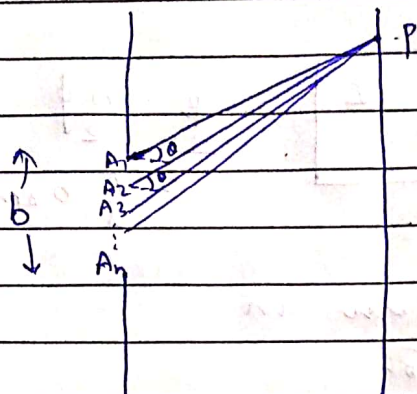 P
A1 θ
A2 θ
A3
b
⋮
An